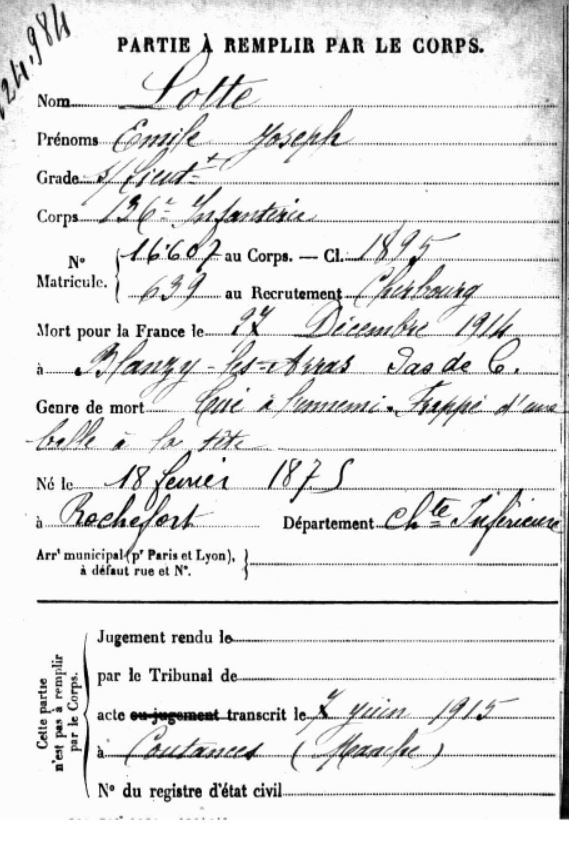 24.984
PARTIE À REMPLIR PAR LE CORPS.
Nom Lotte
Prénoms Emile Joseph
Grade s/Lieut-t
Corps 136e Infanterie
No Matricule. 16607 au Corps. — Cl. 1895
639 au Recrutement Cherbourg
Mort pour la France le 27 Décembre 1914
à Blangy-les-Arras Pas de C.
Genre de mort Tué à l'ennemi. Frappé d'une
balle à la tête
Né le 18 février 1875
à Rochefort Département Chte Inférieure
Arrt municipal (pr Paris et Lyon),
à défaut rue et No.
Cette partie n'est pas à remplir par le Corps.
Jugement rendu le
par le Tribunal de
acte ou jugement transcrit le 7 juin 1915
à Coutances (Manche)
No du registre d'état civil